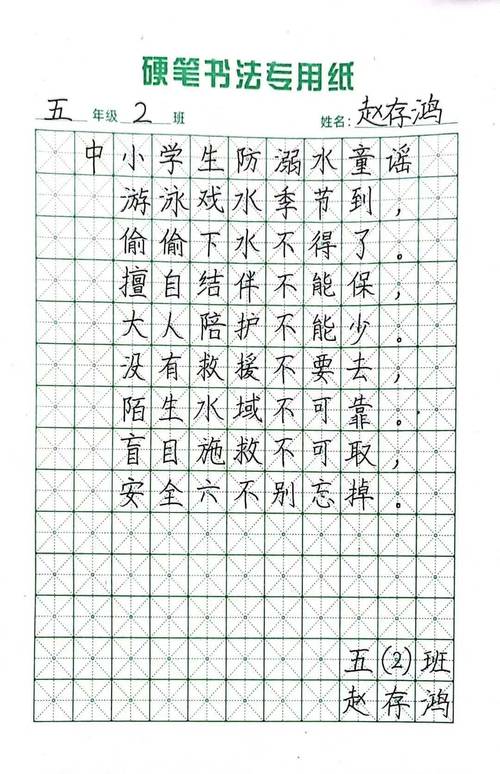 硬笔书法专用纸
五 年级 2 班 姓名: 赵存鸿
中小学生防溺水童谣
游泳戏水季节到，
偷偷下水不得了。
擅自结伴不能保，
大人陪护不能少。
没有救援不要去，
陌生水域不可靠。
盲目施救不可取，
安全六不别忘掉。
五(2)班
赵存鸿